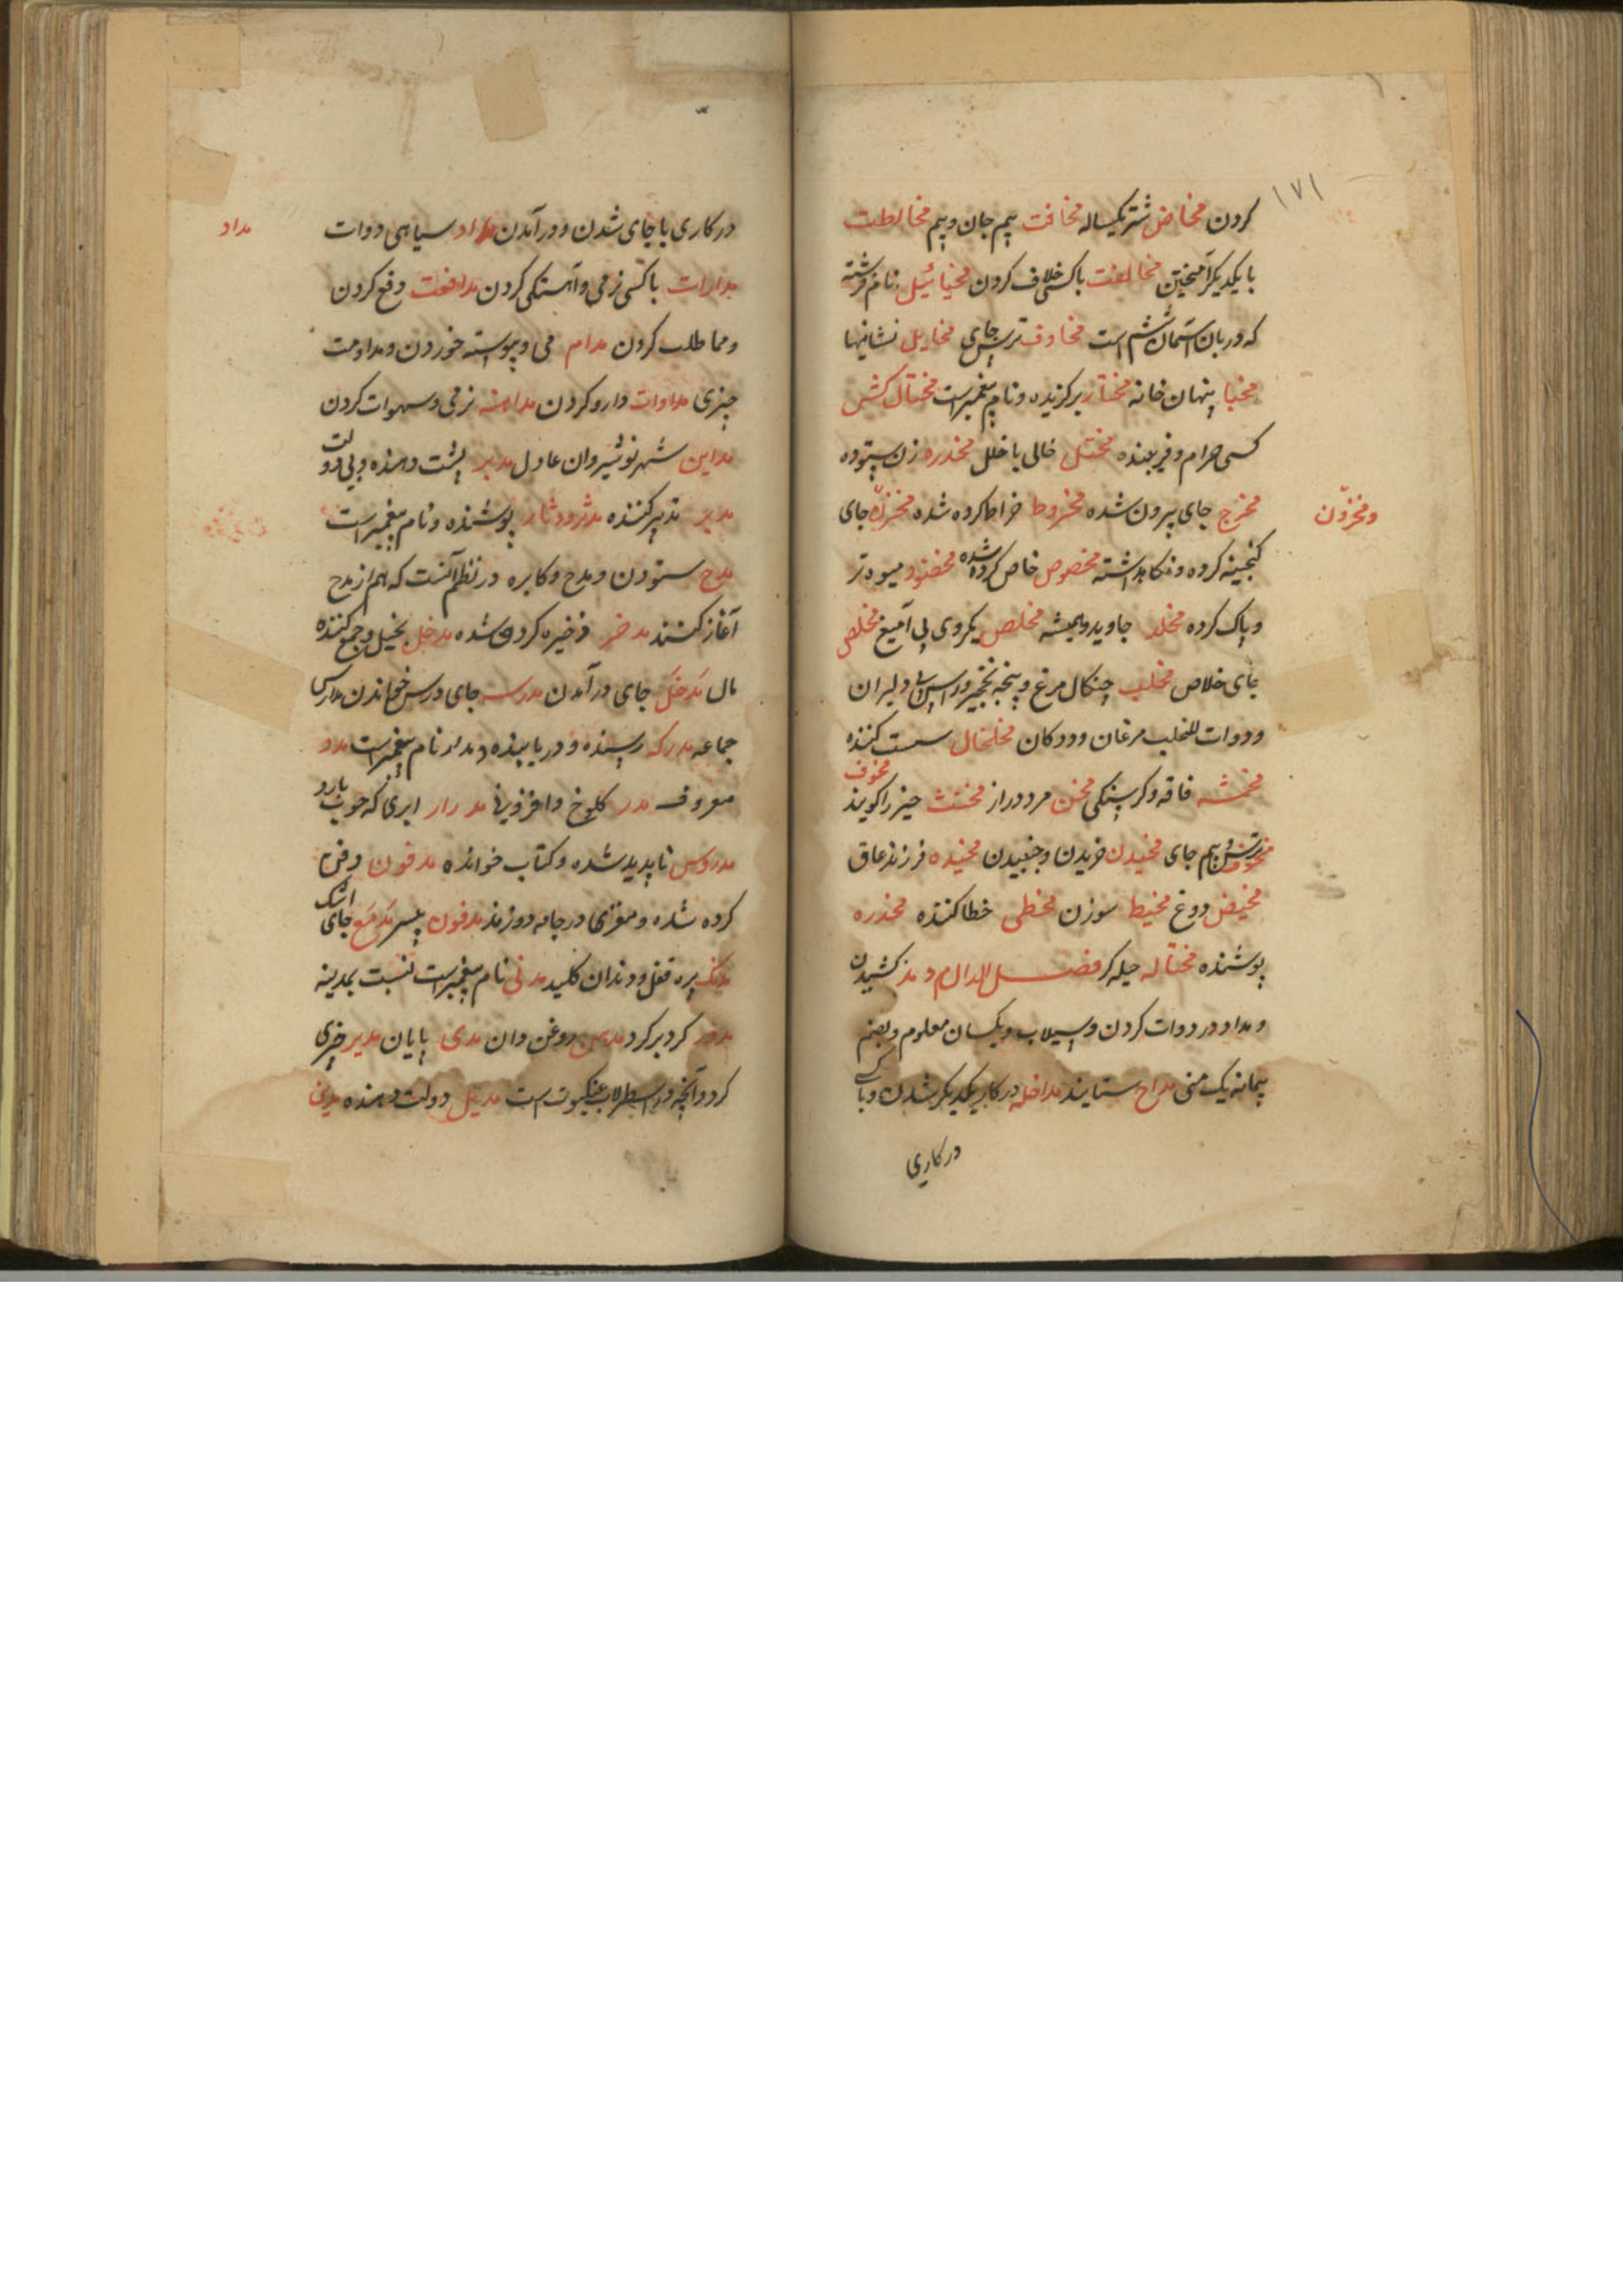 ۱۷۱
کردن مخاض شتر یکساله مخافت بیم جان و بیم مخالطت
با یکدیگر آمیختن مخالفت با کسی خلاف کردن مخیائیل نام فرشته
که دربان آسمان ششم است مخاوف ترس جای مخایل نشانیها
مخبا پنهان خانه مختار برکزیده و نام پیغمبرست مختال کش
کسی حرام و فریبنده مختل خالی با خلل مخدره زن ستوده
مخرج جای بیرون شده مخروط خراط کرده شده مخزن جای
ومخزون
کنجینه کرده و نکاهداشته مخصوص خاص کرده شده مخضود میوه تر
و پاک کرده مخلد جاوید و همیشه مخلص یکروی بی آمیغ مخلص
جای خلاص مخلب چنکال مرغ و پنجه نخجیر و دلیران
و دوات للمخلب مرغان و ددکان مخلخال سست کننده
مخمشه فاقه و کرسنکی مخن مرد دراز مخنث حیز را کویند مخوف
ترس و بیم جای مخیدن خزیدن و جنبیدن مخیده فرزند عاق
مخیض دوغ مخیط سوزن مخطی خطا کننده مخدره
پوشنده مختاله حیله کر فصل الدال م د مد کشیدن
و مداد در دوات کردن و سیلاب و یکسان معلوم و بضم
پیمانه یک منی مداح ستاینده مداخله در کار یکدیکر شدن و با کسی
در کاری
در کاری یا جای شدن و در آمدن مداد سیاهی دوات
مداد
مدارات با کسی نرمی و آهستکی کردن مدافعت دفع کردن
و مماطلت کردن مدام می و پیوسته خوردن و مداومت
چیزی مداوات دارو کردن مداهنه نرمی و سهوات کردن
مداین شهر نوشیروان عادل مدبر پشت دهنده و بی دولت
مدبر تدبیر کننده مدثر و دثار پوشنده و نام پیغمبرست
مدح ستودن و مدح و کابره در نظم آنست که هم از مدح
آغاز کنند مدخر ذخیره کرده شده مدخل بخیل و جمع کننده
مال مدخل جای در آمدن مدرسه جای درس خواندن مدارس
جماعه مدرکه رسنده و دریابنده مدار نام پیغمبرست مدد
معروف مدر کلوخ مدرار ابری که خوب بارد
مدروس ناپدید شده و کتاب خوانده مدفون دفن
کرده شده و مغزی در جامه دوزند مدفون پسر مدمع جای اشک
مدنک پره قفل و دندان کلید مدنی نام پیغمبرست نسبت بمدینه
مدور کرد بر کرد مدهن روغن دان مدی پایان مدیر چیزی
کرد و آنچه در اسطرلاب عنکبوت است مدیل دولت دهنده مدین